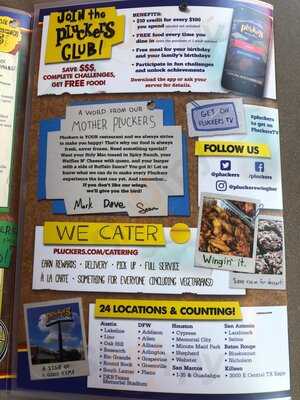 JOIN THE
PLUCKERS
CLUB!
SAVE $$$,
COMPLETE CHALLENGES,
GET FREE FOOD!
BENEFITS:
• $10 credit for every $100
you spend
• FREE food every time you
dine in
• Free meal for your birthday
and your family's birthdays
• Participate in fun challenges
and unlock achievements
Download the app or ask your
server for details.
A WORD FROM OUR
MOTHER PLUCKERS
Pluckers is YOUR restaurant and we always strive
to make you happy! That's why our food is always
fresh, never frozen. Need something special?
Want your Holy Mac tossed in Spicy Ranch, your
Waffles N' Cheese with queso, and your burger
with a side of Buffalo Sauce? You got it! Let us
know what we can do to make every Pluckers
experience the best one yet. And remember...
If you don't like our wings,
we'll give you the bird!
Mark Dave Sean
GET ON
PLUCKERS TV
#pluckers
to get on
PluckersTV
FOLLOW US
@pluckers
@pluckers
@pluckerswingbar
WE CATER
PLUCKERS.COM/CATERING
EARN REWARDS • DELIVERY • PICK UP • FULL SERVICE
À LA CARTE • SOMETHING FOR EVERYONE (INCLUDING VEGETARIANS!)
Wingin' it.
Save room for dessert!
24 LOCATIONS & COUNTING!
Austin
• Lakeline
• Linc
• Oak Hill
• Research
• Rio Grande
• Round Rock
• South Lamar
• DKR Texas
Memorial Stadium
DFW
• Addison
• Allen
• Arlington
• Grapevine
• Greenville
• Plano
Houston
• Cypress
• Memorial City
• Minute Maid Park
• Shepherd
• Webster
San Marcos
• I-35 & Guadalupe
San Antonio
• Landmark
• Selma
Baton Rouge
• Bluebonnet
• Nicholson
Killeen
• 3000 E Central TX Expy
A SIGN OF
A GOOD TIME!